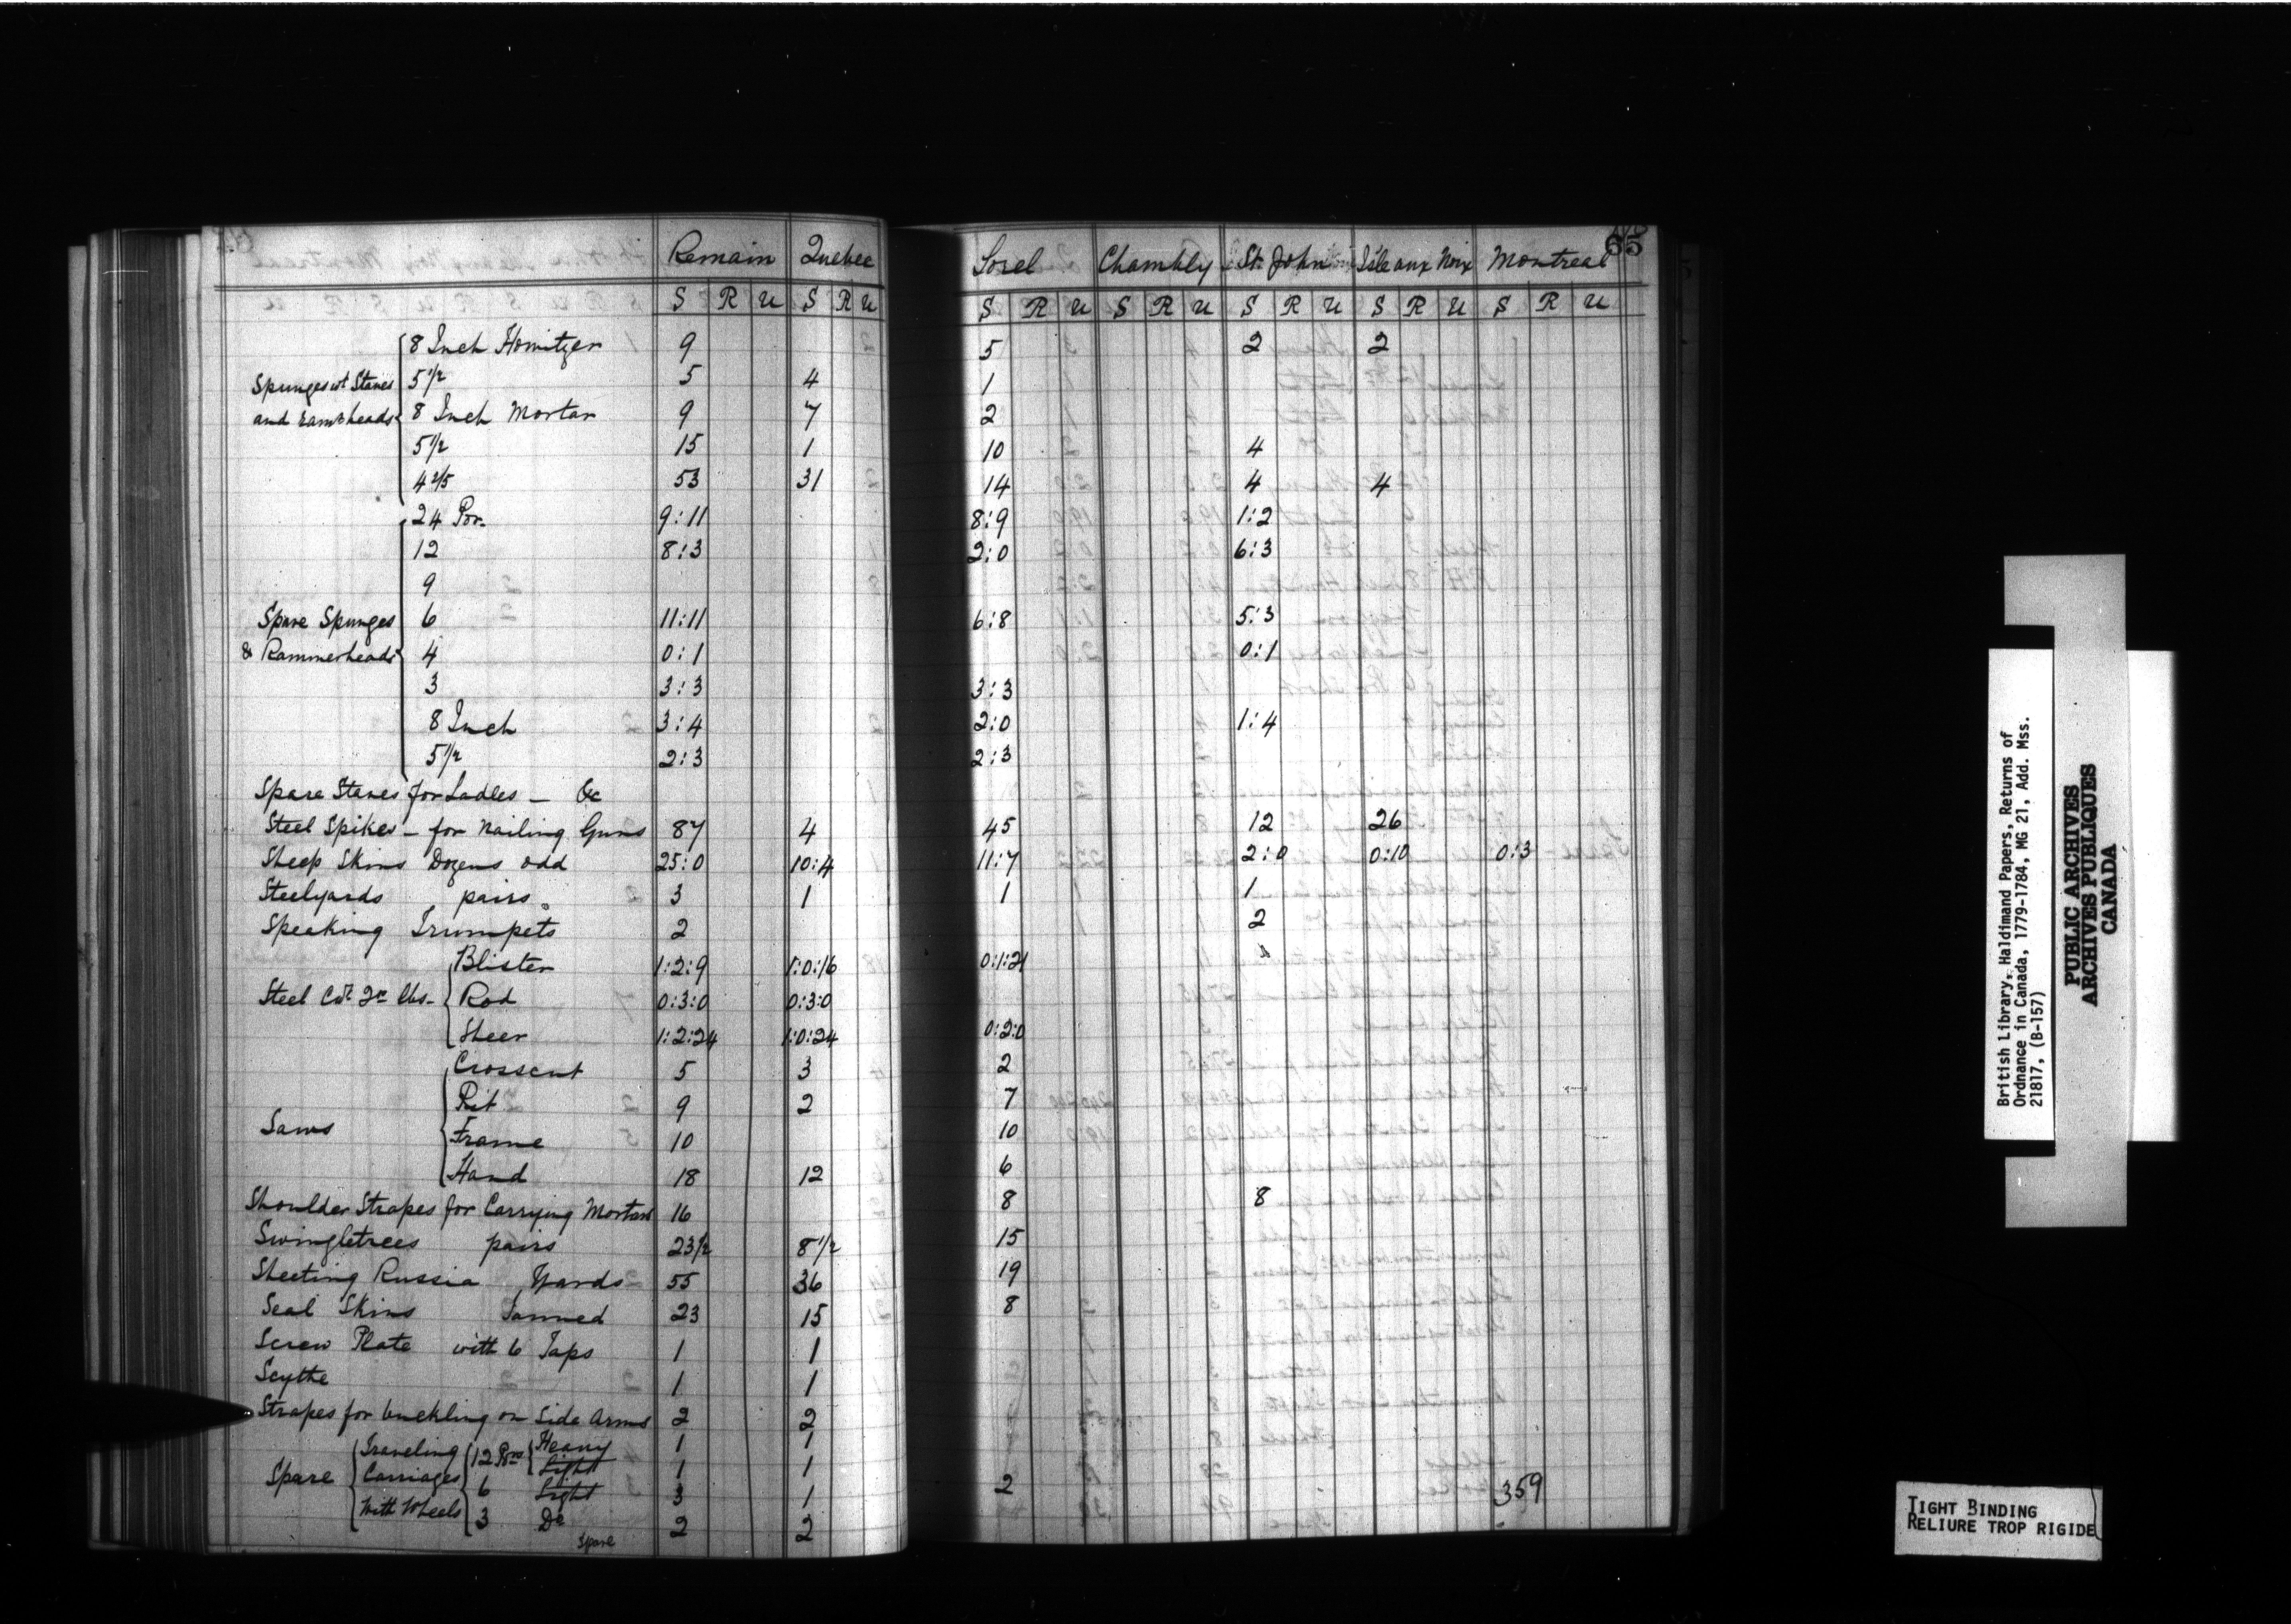 65
Remain Quebec Sorel Chambly St. John Isle aux Noix Montreal
S R U S R U S R U S R U S R U S R U S R U
8 Inch Howitzer 9 5 2 2
Spunges wt Staves 5 1/2 5 4 1
and rammrheads 8 Inch Mortar 9 7 2
5 1/2 15 1 10 4
4 2/5 53 31 14 4 4
24 Por. 9:11 8:9 1:2
12 8:3 2:0 6:3
9
Spare Spunges 6 11:11 6:8 5:3
& Rammerheads 4 0:1 0:1
3 3:3 3:3
8 Inch 3:4 2:0 1:4
5 1/2 2:3 2:3
Spare Staves for Ladles — &c
Steel Spikes — for nailing Guns 87 4 45 12 26
Sheep Skins Dozens odd 25:0 10:4 11:7 2:0 0:10 0:3
Steelyards pairs 3 1 1 1
Speaking Trumpets 2 2
Blister 1:2:9 1:0:16 0:1:21
Steel Cwt qr lbs. Rod 0:3:0 0:3:0
Sheer 1:2:24 1:0:24 0:2:0
Crosscut 5 3 2
Pit 9 2 7
Saws Frame 10 10
Hand 18 12 6
Shoulder Strapes for Carrying Mortars 16 8 8
Swingletrees pairs 23 1/2 8 1/2 15
Sheeting Russia Yards 55 36 19
Seal Skins Tanned 23 15 8
Screw Plate with 6 Taps 1 1
Scythe 1 1
Strapes for buckling on Side Arms 2 2
Traveling 12 Prs Heavy 1 1
Spare Carriages Light 1 1
6 Light 3 1 2 359
With Wheels 3 Do 2 2
Spare
British Library, Haldimand Papers, Returns of
Ordnance in Canada, 1779-1784, MG 21, Add. Mss.
21817, (B-157)
PUBLIC ARCHIVES
ARCHIVES PUBLIQUES
CANADA
TIGHT BINDING
RELIURE TROP RIGIDE